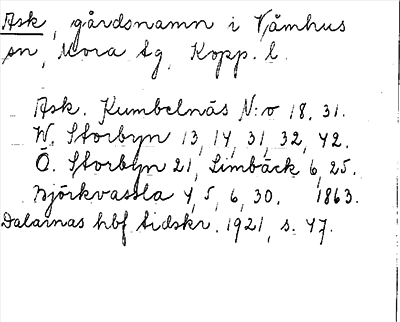 Ask, gårdsnamn i Våmhus
sn, Mora tg, Kopp. l.
Ask. Kumbelnäs N:o 18, 31.
W. Storbyn 13, 14, 31, 32, 42.
Ö. Storbyn 21, Limbäck 6, 25.
Björkvassla 4, 5, 6, 30. 1863.
Dalarnas hbf tidskr. 1921, s. 47.